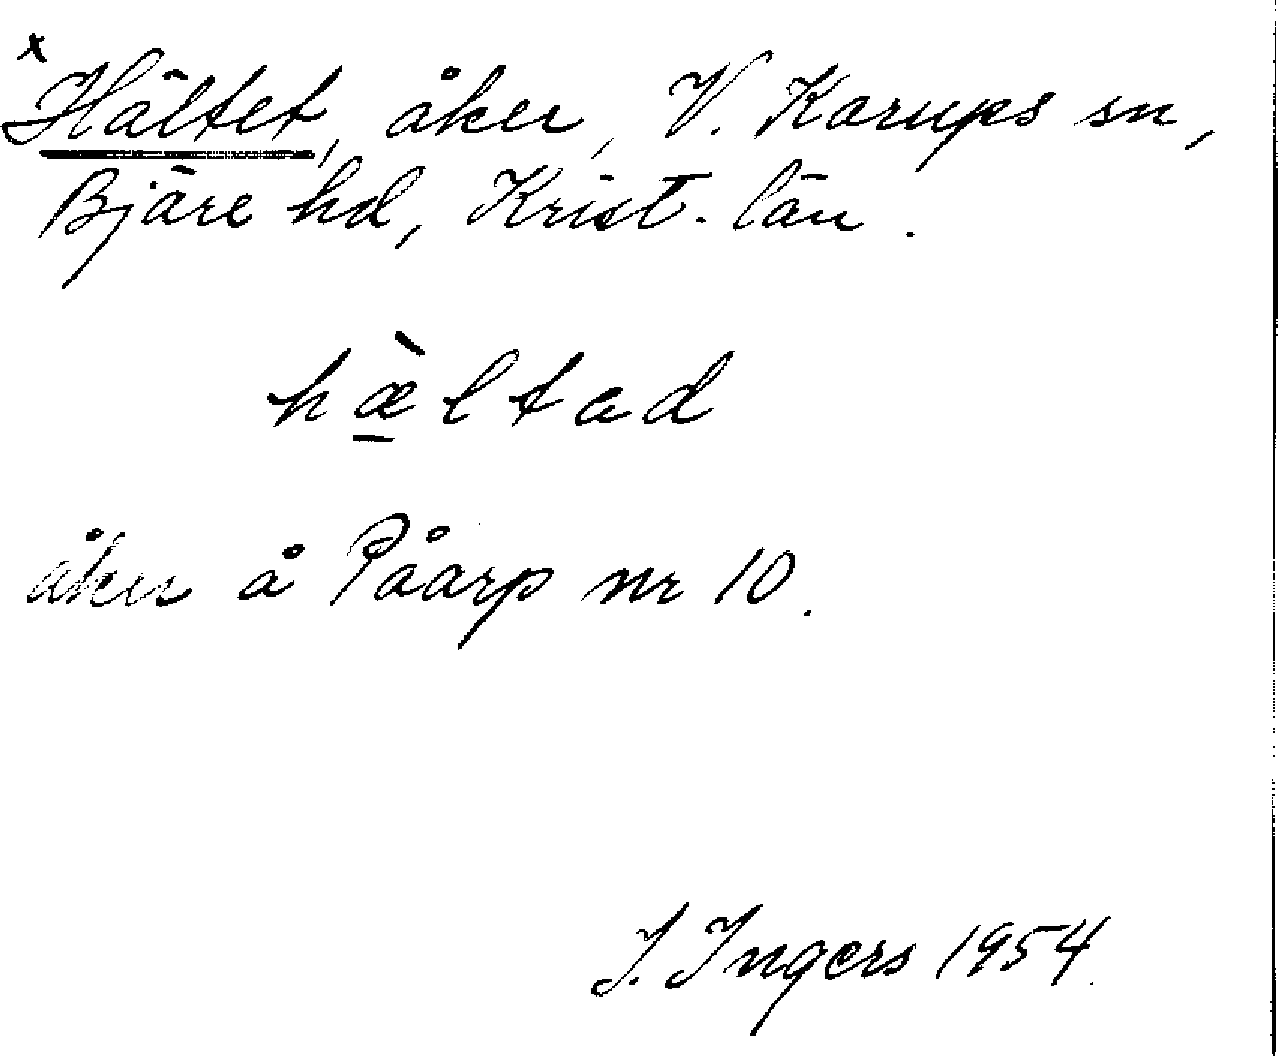 x
Hältet, åker, V. Karups sn,
Bjäre hd, Krist. län.
hæ̠̀ltad
åker å Påarp nr 10.
I. Ingers 1954.